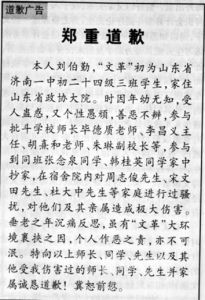 道歉广告
郑重道歉
本人刘伯勤，“文革”初为山东省
济南一中初二十四级三班学生，家住
山东省政协大院。时因年幼无知，受
人蛊惑，又个性恶顽，善恶不辨，参与
批斗学校师长毕德质老师、李昌义主
任、胡熹和老师、朱琳副校长等，参与
到同班张念泉同学、韩桂英同学家中
抄家，在宿舍院内对周志俊先生、宋文
田先生、杜大中先生等家庭进行过骚
扰，对他们及其亲属造成极大伤害。
垂老之年沉痛反思，虽有“文革”大环
境裹挟之因，个人作恶之责，亦不可
泯。特向以上师长、同学、先生以及其
他受我伤害过的师长、同学、先生并家
属诚恳道歉！冀恕前愆。